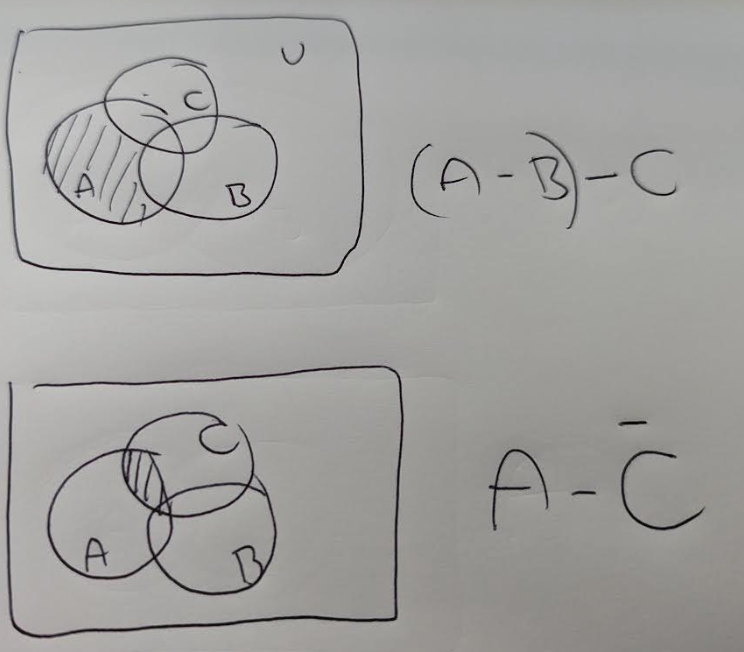 U
C
A
B
(A - B) - C
C
A
B
A - C̅